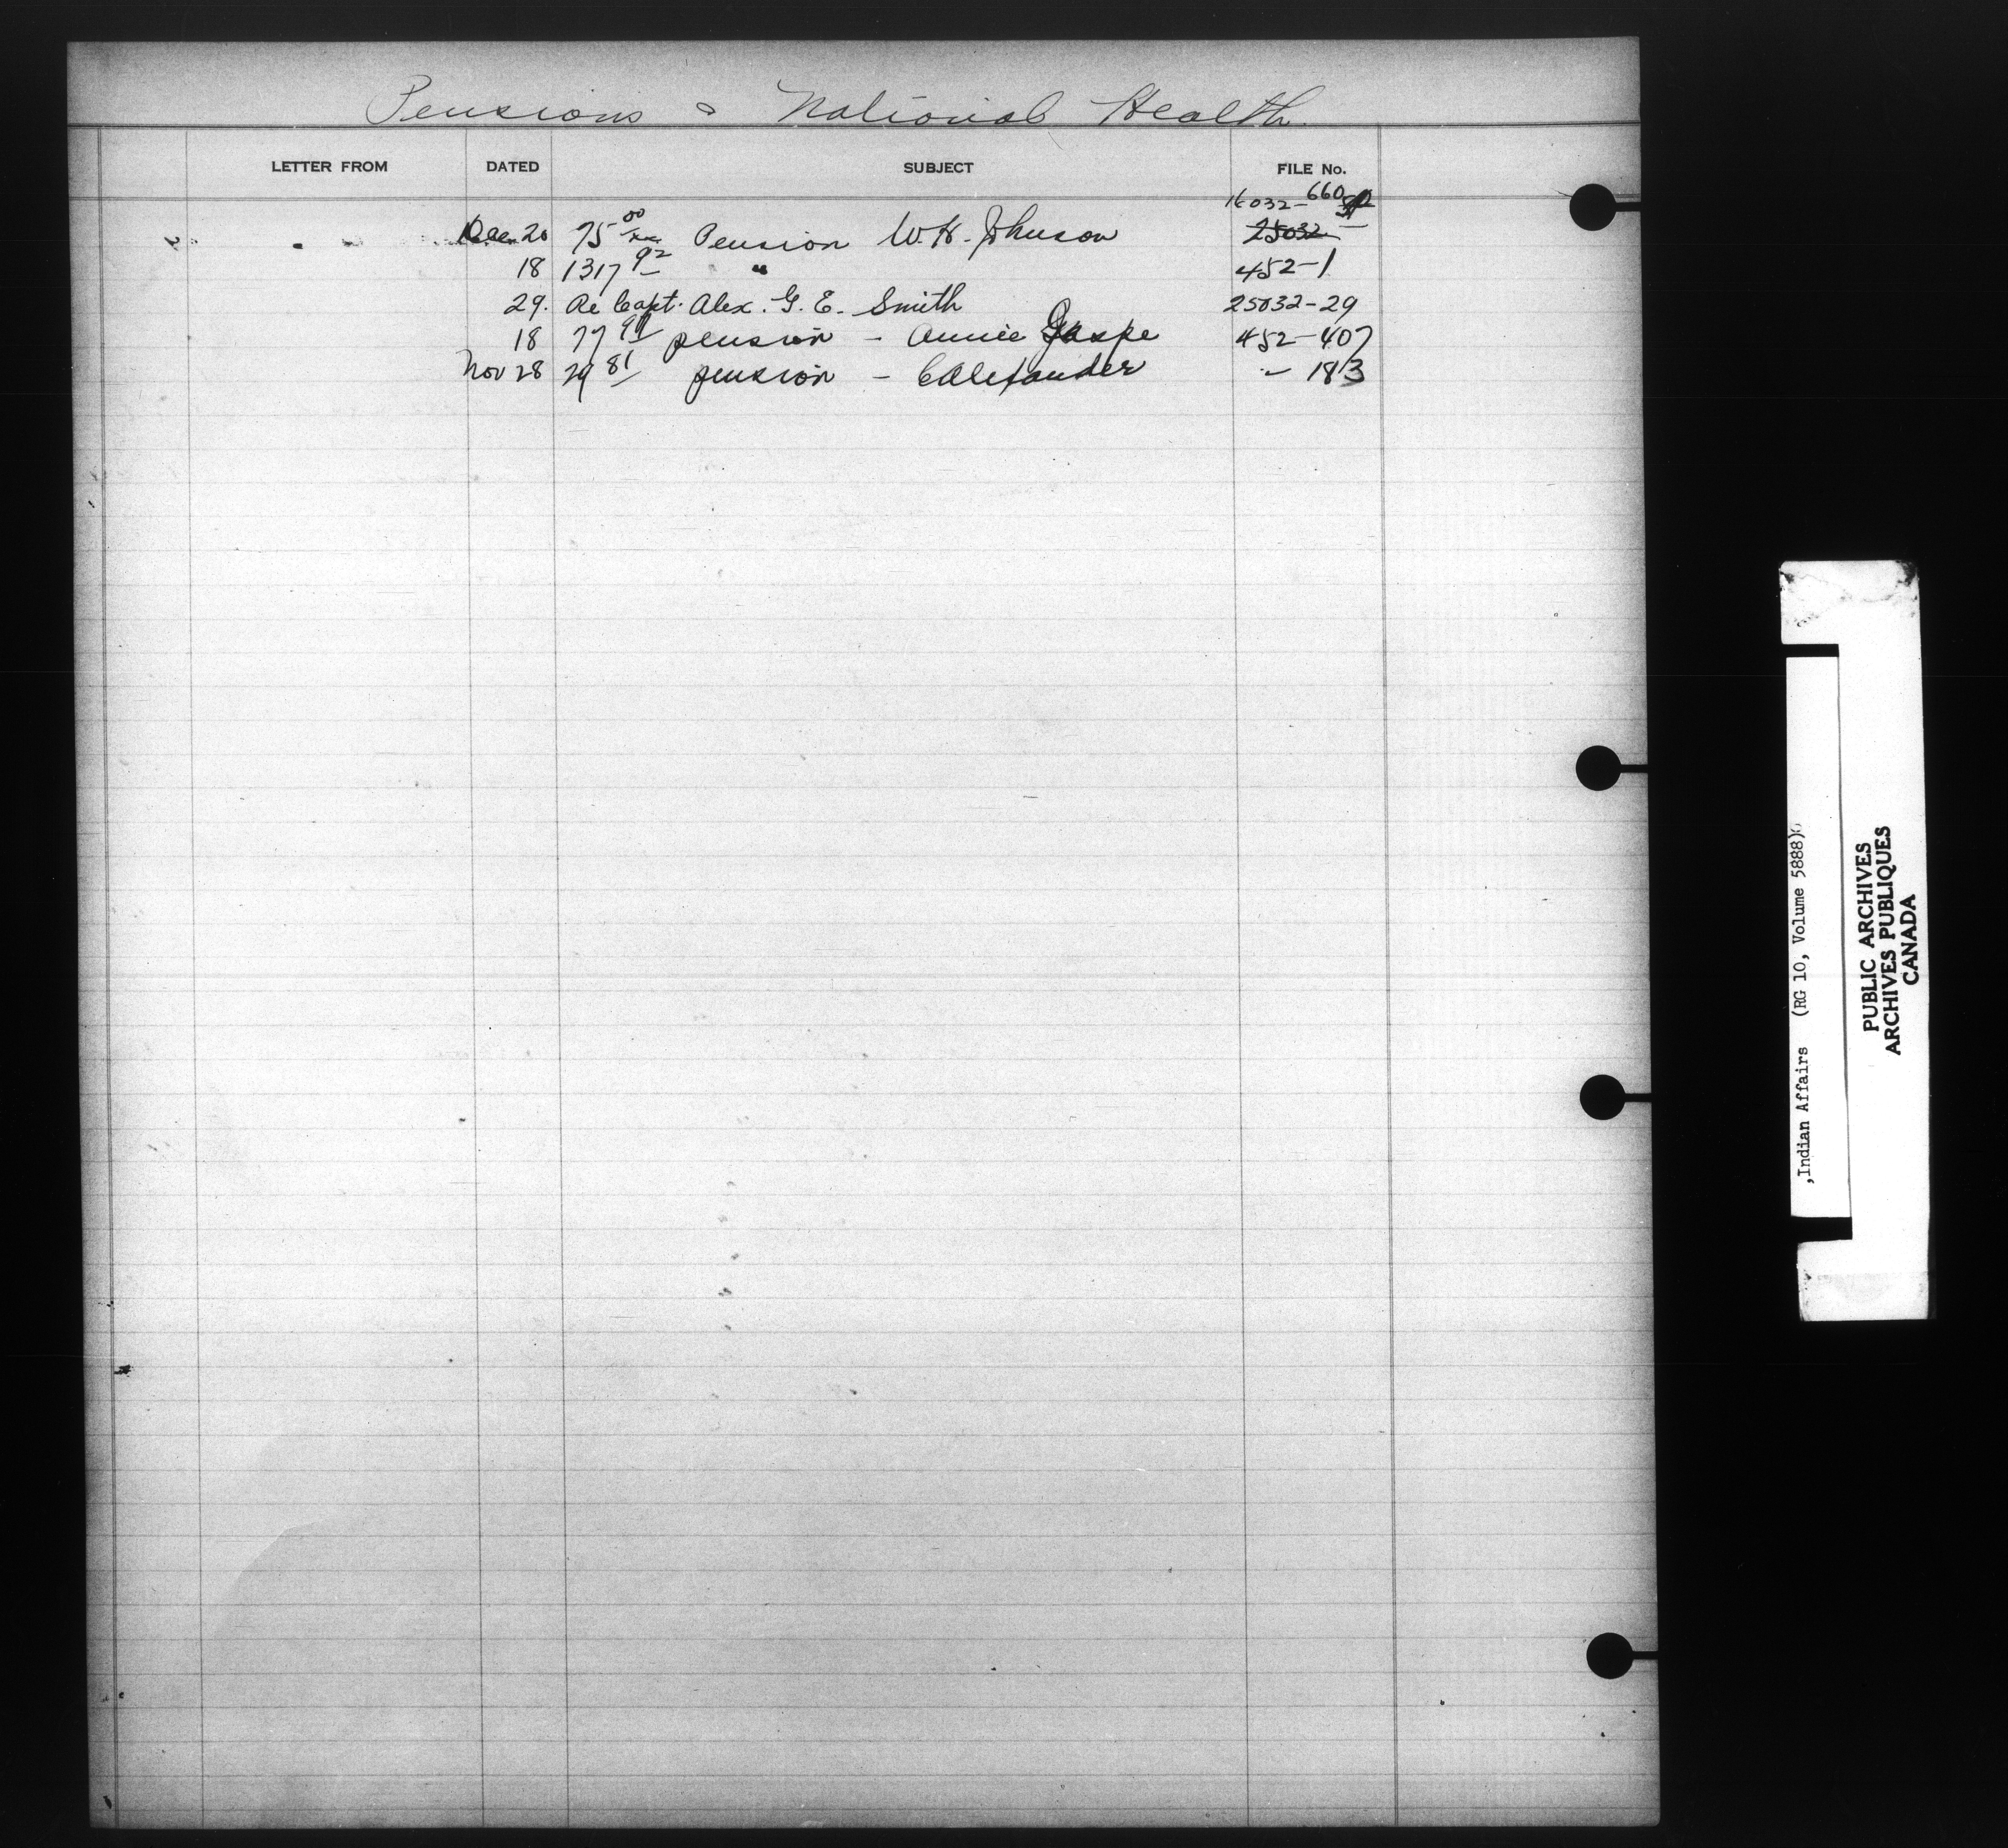 Pensions & National Health.
LETTER FROM DATED SUBJECT FILE No.
16032-660
Dec. 20 75 00/xx Pension W. H. Johnson 25032 -
18 1317 92 " 452-1
29. Re Capt. Alex. G. E. Smith 25032-29
18 77 pension - Annie Gaspe 452-407
Nov 28 29 81 pension - C Alexander " - 183
,Indian Affairs (RG 10, Volume 5888)
PUBLIC ARCHIVES
ARCHIVES PUBLIQUES
CANADA